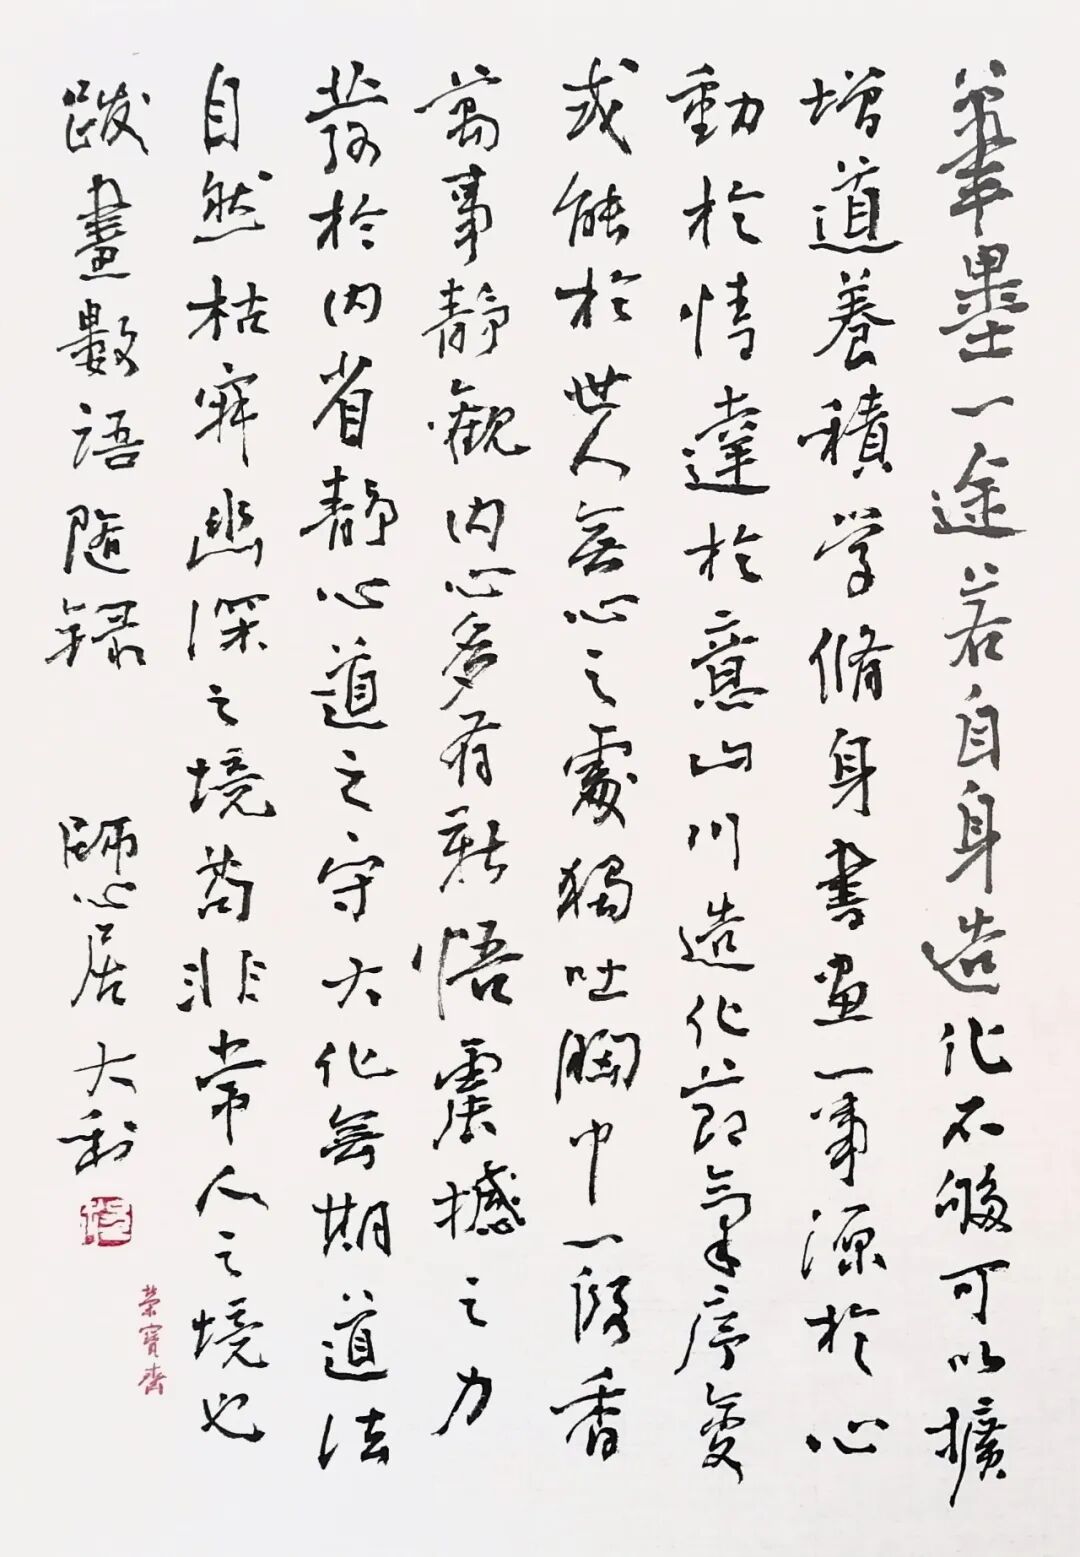 筆墨一途若自身造化不够可以擴
增道養積学脩身書畫一事源於心
動於情達於意山川造化節氣序變
或能於世人無心之處獨吐胸中一段香
萬事靜觀内心多有新悟震撼之力
發於内省靜心道之守大化無期道法
自然枯寂幽深之境苟非常人之境也
跋畫數語隨録
師心居大利
榮寶齋